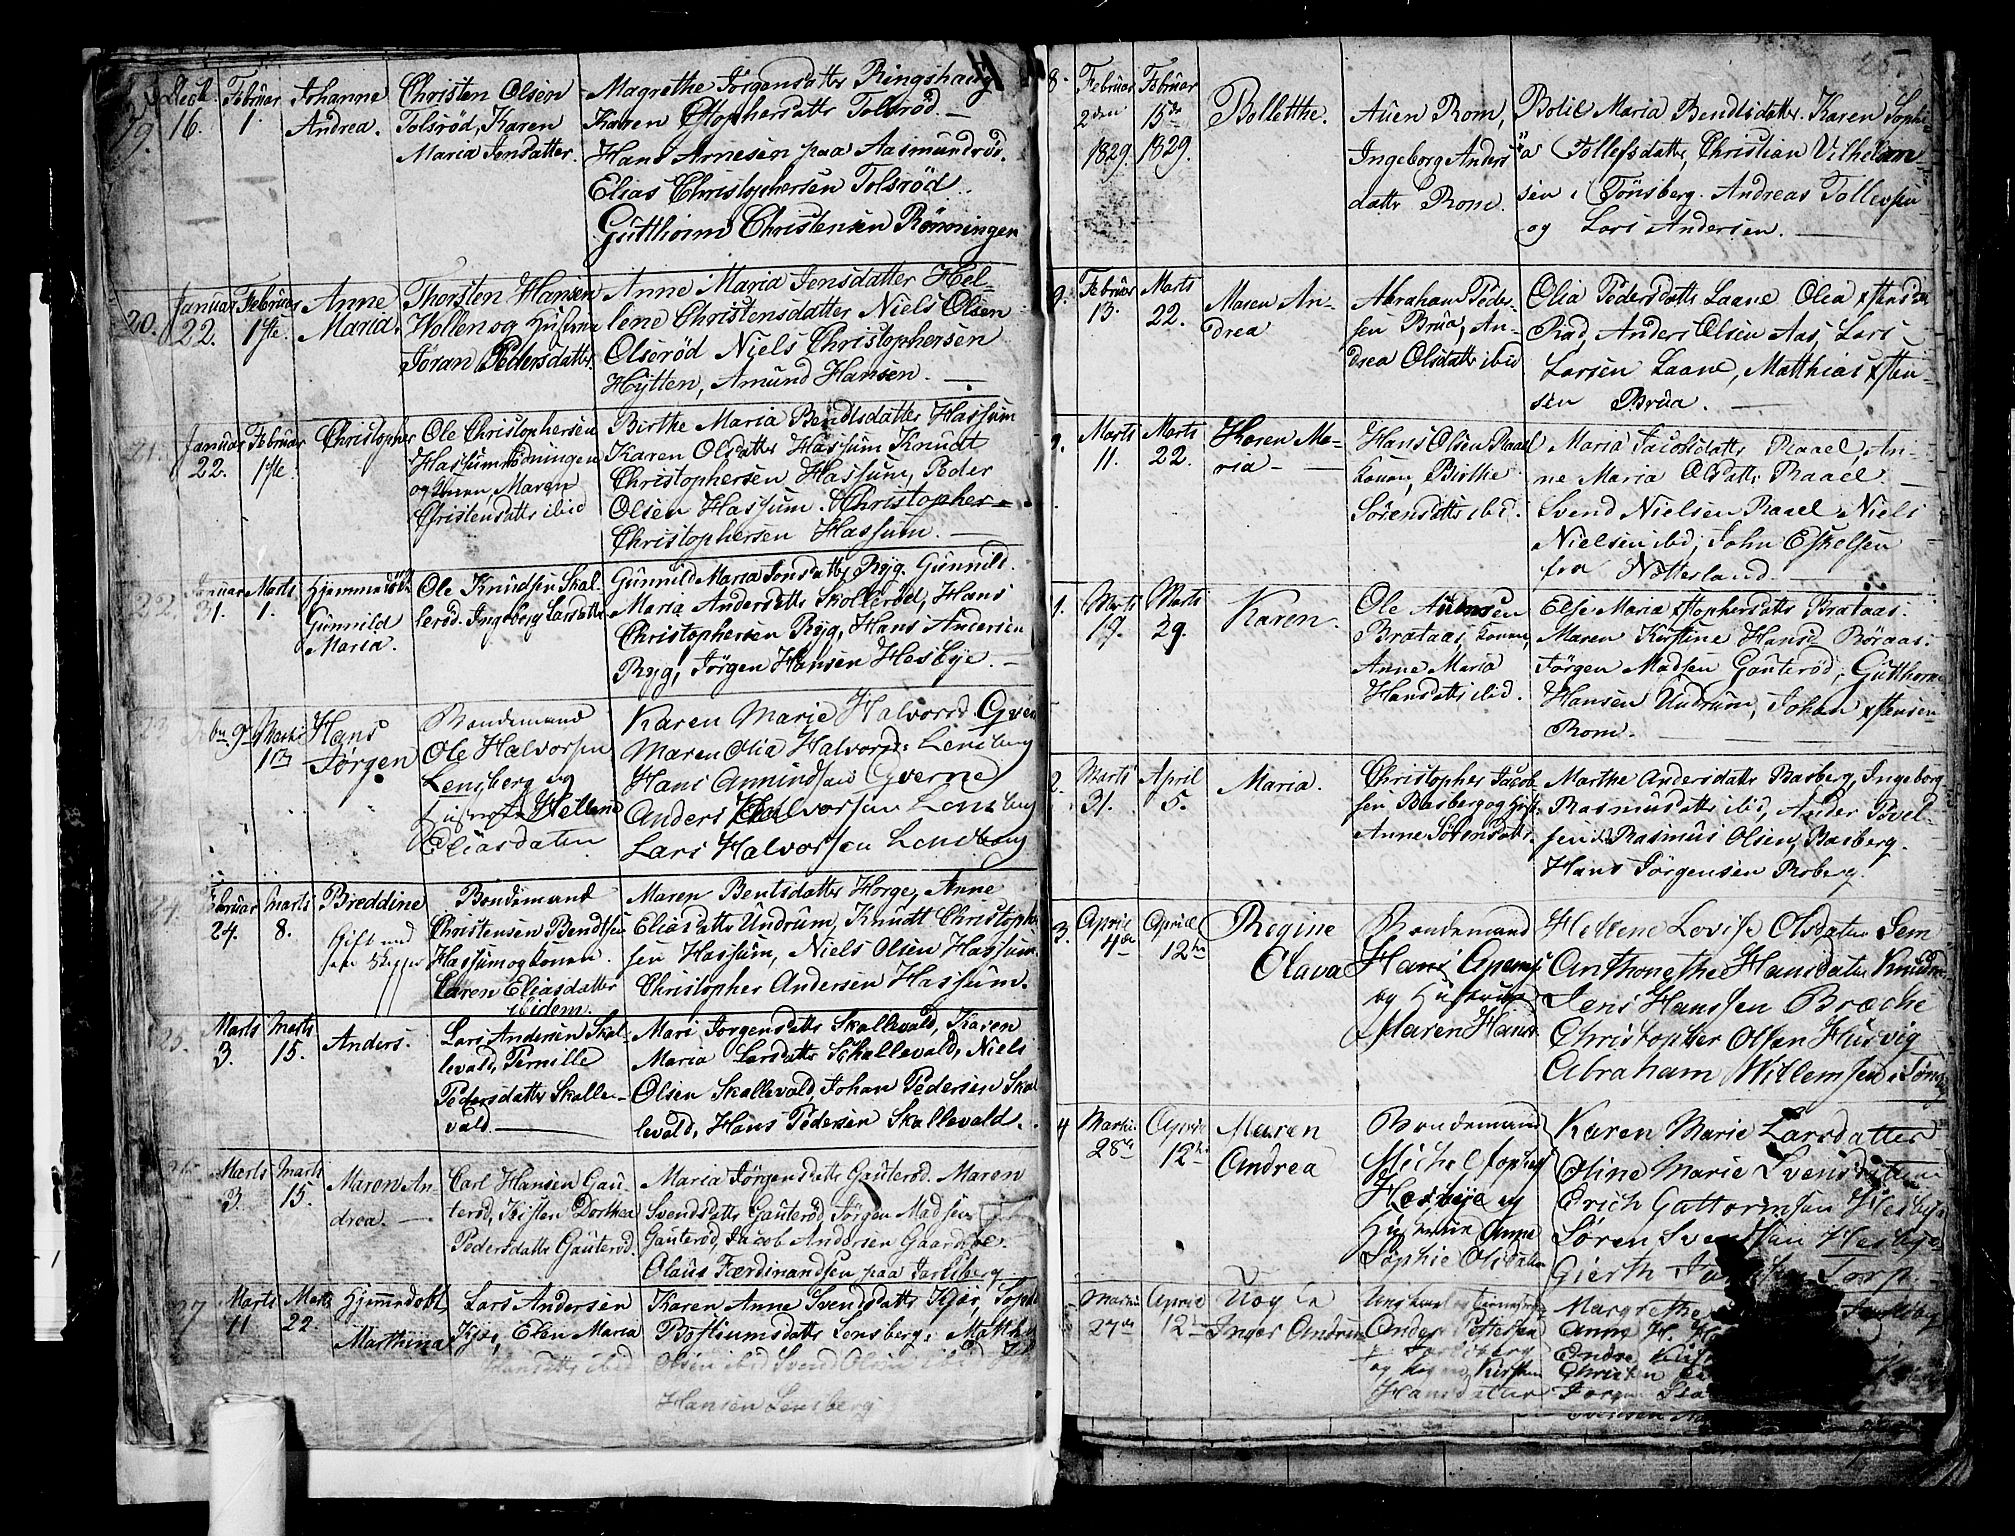 19.
Dec.
16.
Februar
1.
Johanne
Andrea.
Christen Olsen
Tolsröd, Karen
Maria Jensdatter.
Magrethe Jörgensdatter Ringshaug
Karen Christophersdatter Tolsröd.
Hans Arnesen paa Aasmundröd.
Elias Christophersen Tolsröd
Gutthorm Christensen Rönningen
20.
Januar
22.
Februar
1ste.
Anne
Maria.
Thorsten Hansen
Wollen og Hustru
Jöran Pedersdatter.
Anne Maria Jensdatter Hel-
lene Christensdatter Niels Olsen
Olseröd Niels Christophersen
Hytten, Amund Hansen.
21.
Januar
22.
Februar
1ste.
Christopher
Ole Christophersen
Hassumrödningen
og Konen, Maren
Christensdatter ibid
Birthe Maria Bendtsdatter Hassum
Karen Olsdatter Hassum Knudt
Christophersen Hassum, Peder
Olsen Hassum Christopher
Christophersen Hassum.
22.
Januar
31.
Marts
1.
Hjemmedöbt
Gunnild
Maria.
Ole Knudsen Skal-
leröd. Ingeborg Larsdatter
Gunnild Maria Jonsdatter Ryg. Gunnild
Maria Andersdatter Skolleröd, Hans
Christophersen Ryg, Hans Andersen
Ryg, Jörgen Hansen Hesbye.
23.
9
Martii
1
Hans
Jörgen
Bondemand
Ole Halvorsen
Lensberg og
Hellene
Eliasdatter
Karen Marie Halvorsd. Gvern
Maren Olia Halvorsd: Lensberg
Hans Amundsen Gverne
Anders Halvorsen Lensberg
Lars Halvorsen Lensberg
24.
Februar
24.
Marts
8.
Breddine
Gift med
Bondemand
Christensen Bendtsen
Hassum og konen.
Caren Eliasdatter
ibidem.
Maren Bentsdatter Horge, Anne
Eliasdatter Undrum, Knudt Christopher-
sen Hassum, Niels Olsen Hassum
Christopher Andersen Hassum.
25.
Marts
3.
Marts
15.
Anders.
Lars Andersen Skal-
levald, Pernille
Pedersdatter Skalle-
vald.
Mari Jorgensdatter Skallevald, Karen
Maria Larsdatter Skallevald, Niels
Olsen Skallevald, Johan Pedersen Skal-
levald, Hans Pedersen Skallevald.
26.
Marts
3.
Marts
15.
Maren An-
drea.
Carl Hansen Gau-
teröd, Kisten Dorthea
Pedersdatter Gauteröd.
Maria Jörgensdatter Gauteröd. Maren
Svendsdatter Gauteröd, Jörgen Madsen
Gauteröd, Jacob Andersen Gaardbo.
Olaus Færdinandsen paa Jarlsberg
27
Marts
11
Marts
22
Hjemmdöbt
Marthina
Lars Andersen
Kjær, Elen Maria
Hansdatter ibid
Karen Anne Svendsdatter Kjær, Sophie
Bottiumsdatter Lensberg, Matthis
Olsen ibid Svend Olsen ibid
Hansen Lensberg
25.
8.
Februar
2den
1829.
Februar
15de
1829.
Bolletthe.
Auen Rom,
Ingeborg Anders
datter Rom.
Bolil Maria Bendtsdatter. Karen Sophi-
"a Tollefsdatter, Christian Vilhelm
sen i Tönsberg. Andreas Tollevsen
og Lars Andersen.
9.
Februar
13.
Marts
22.
Maren An-
drea
Abraham Peder-
sen Brua, An-
drea Olsdatter ibid
Olia Pedersdatter Laane Olia
Rad, Anders Olsen Aas, Lars
Larsen Laane, Matthias
sen Brua.
Marts
11.
Marts
22.
Karen Ma-
ria
Hans Olsen Raael
konen, Birthe
Sörensdatter ibid.
Maria Jacobsdatter Raael, An-
ne Maria Olsdatter Raael
Svend Nielsen Raael Niels
Nielsen ibid, John Eskelsen
fra Nötterland.
1.
Marts
19.
Marts
29.
Karen.
Ole Auensen
Brataas, konen,
Anne Maria
Hansdatter ibid.
Else Maria Xstophersdatter Brataas.
Maren Kirstine Hansd Böraas.
Jörgen Madsen Gauteröd, Gutthorm
Hansen Undrum, Johan Xstensen
Rom.
2.
Marts
31.
April
5.
Maria.
Christopher Jacob-
sen Basberg og Hust.
Anne Sörensdatter.
Marthe Andersdatter Basberg, Ingeborg
Rasmusdatter ibid, Ander Povel-
sen ibid Rasmus Olsen, Basberg.
Hans Jörgensen Roberg.
3.
April
4de
April
12te
Regine
Olava
Bondemand
Hans
og Hustrue
Maren Hans
Hellene Lovise Olsdatter Sem
Anthonethe Hansdatter
Jens Hanssen Bræche
Christopher Olsen Husvig
Abraham Willemsen i Töns
4
Martii
28de
April
12te
Maren
Andrea
Bondemand
Michel
Hesbye og
Hustrue Anne
Sophie Olsdatter
Karen Marie Larsdatter
Oline Marie Svensdatter
Erich Gattormsen Hesbye
Søren Svensen Hesbye
Gierth Torp
Martii
27de
April
12te
Inger Andrine
Anders Pettersen
og Kirsten
Hansdatter
Margrethe
Anne H.
Endre
Christen
Jorgen
Svensen